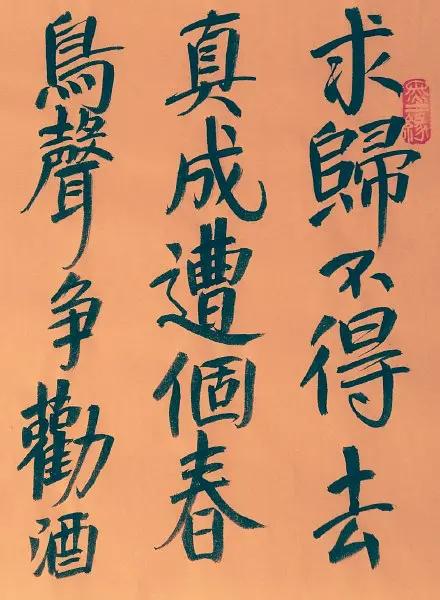 求歸不得去
真成遭個春
鳥聲争勸酒